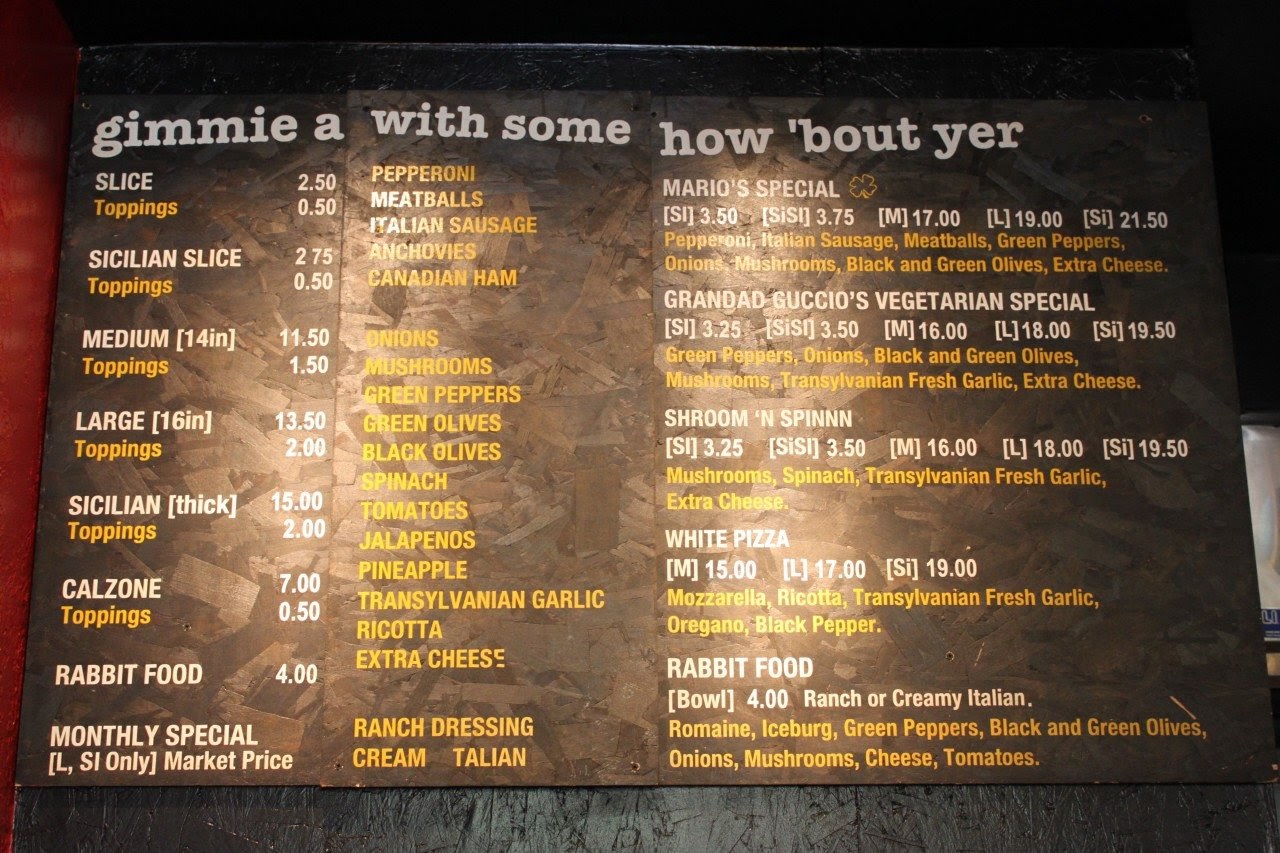 gimmie a
SLICE 2.50
Toppings 0.50
SICILIAN SLICE 2 75
Toppings 0.50
MEDIUM [14in] 11.50
Toppings 1.50
LARGE [16in] 13.50
Toppings 2.00
SICILIAN [thick] 15.00
Toppings 2.00
CALZONE 7.00
Toppings 0.50
RABBIT FOOD 4.00
MONTHLY SPECIAL
[L, SI Only] Market Price
with some
PEPPERONI
MEATBALLS
ITALIAN SAUSAGE
ANCHOVIES
CANADIAN HAM
ONIONS
MUSHROOMS
GREEN PEPPERS
GREEN OLIVES
BLACK OLIVES
SPINACH
TOMATOES
JALAPENOS
PINEAPPLE
TRANSYLVANIAN GARLIC
RICOTTA
EXTRA CHEESE
RANCH DRESSING
CREAM TALIAN
how 'bout yer
MARIO'S SPECIAL
[Sl] 3.50 [SiSl] 3.75 [M] 17.00 [L] 19.00 [Si] 21.50
Pepperoni, Italian Sausage, Meatballs, Green Peppers,
Onions, Mushrooms, Black and Green Olives, Extra Cheese.
GRANDAD GUCCIO'S VEGETARIAN SPECIAL
[Sl] 3.25 [SiSl] 3.50 [M] 16.00 [L] 18.00 [Si] 19.50
Green Peppers, Onions, Black and Green Olives,
Mushrooms, Transylvanian Fresh Garlic, Extra Cheese.
SHROOM 'N SPINNN
[Sl] 3.25 [SiSl] 3.50 [M] 16.00 [L] 18.00 [Si] 19.50
Mushrooms, Spinach, Transylvanian Fresh Garlic,
Extra Cheese.
WHITE PIZZA
[M] 15.00 [L] 17.00 [Si] 19.00
Mozzarella, Ricotta, Transylvanian Fresh Garlic,
Oregano, Black Pepper.
RABBIT FOOD
[Bowl] 4.00 Ranch or Creamy Italian.
Romaine, Iceburg, Green Peppers, Black and Green Olives,
Onions, Mushrooms, Cheese, Tomatoes.